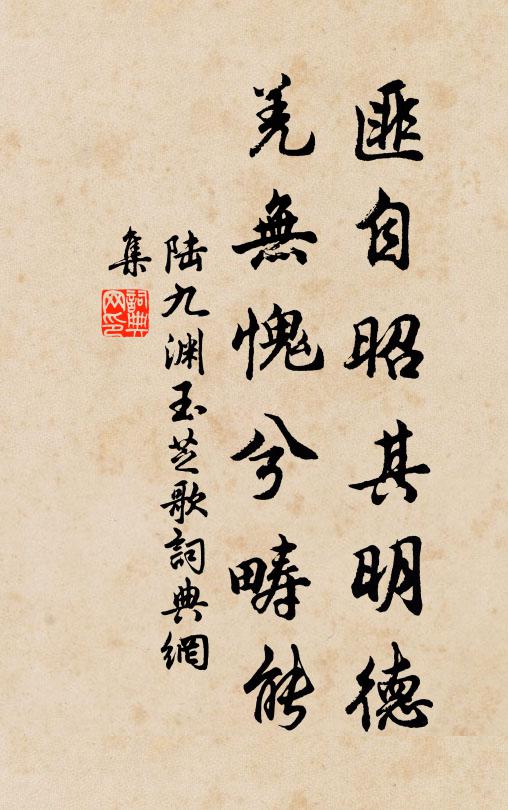 匪自昭其明德
羌無愧兮疇能
陸九渊玉芝歌詞典網
集
詞典
网印